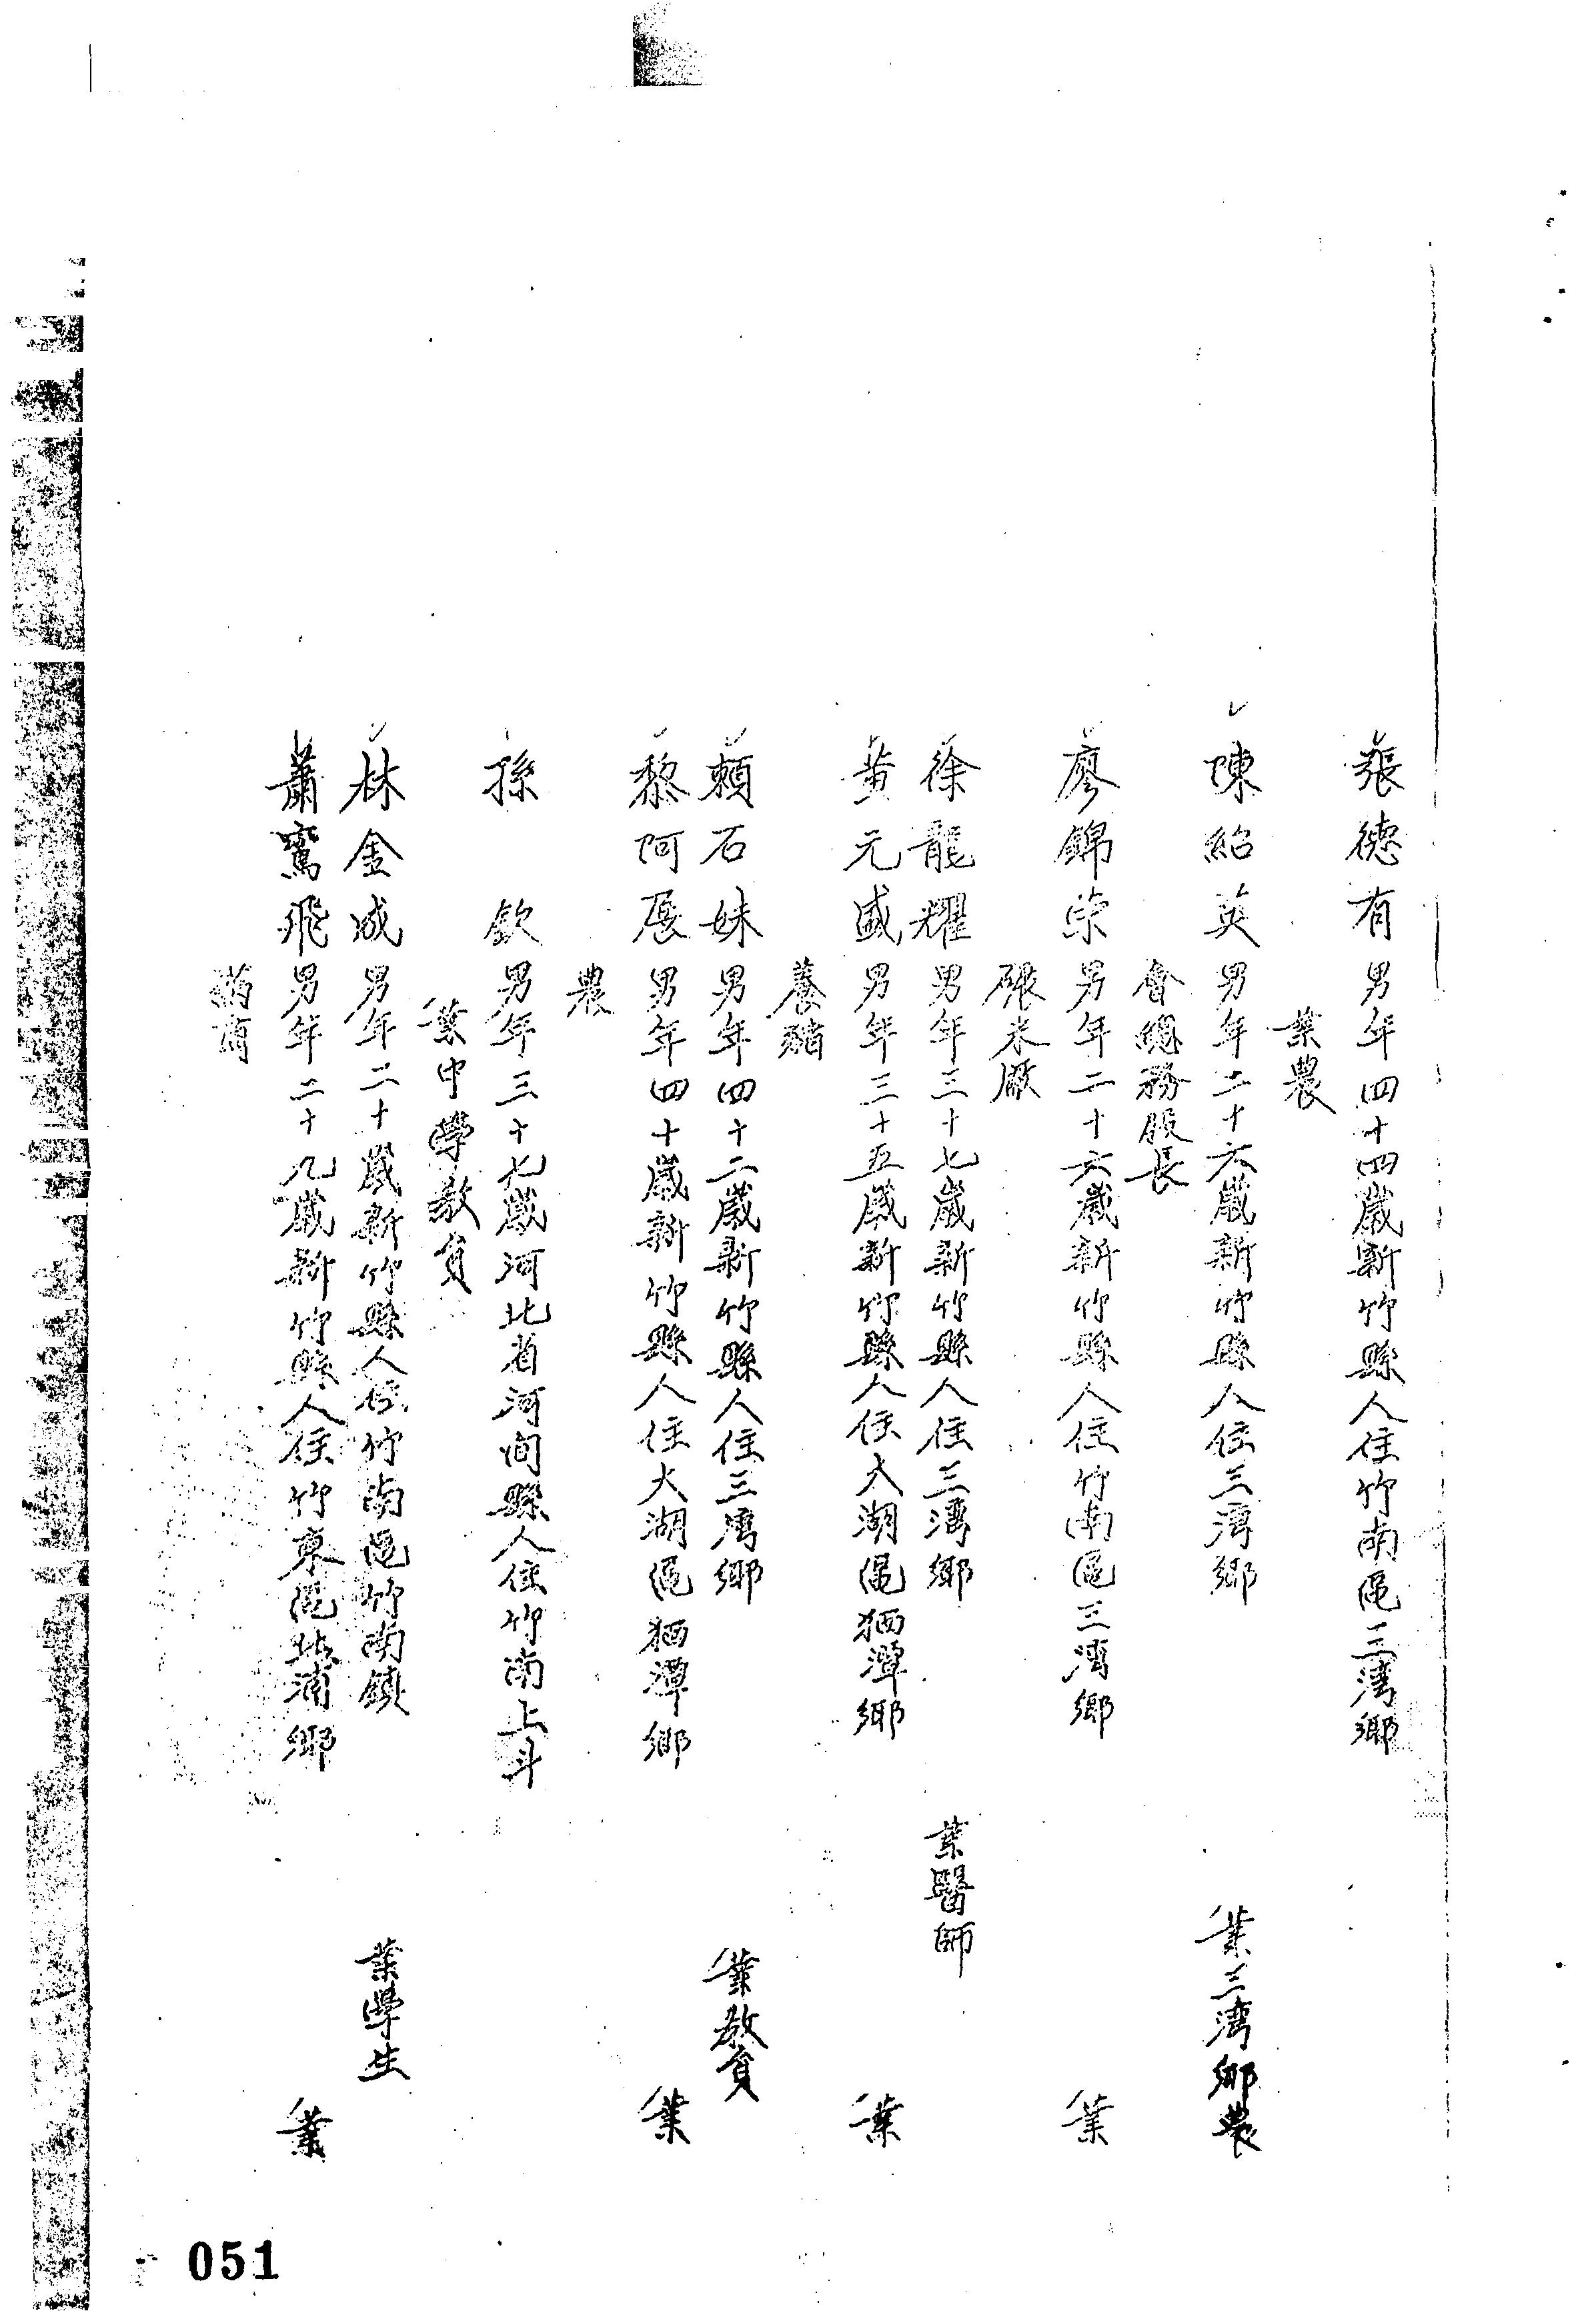 張德有 男年四十四歲新竹縣人住竹南區三灣鄉
業農
陳紹英 男年二十六歲新竹縣人住三灣鄉 業三灣鄉農
會總務股長
廖錦榮 男年二十六歲新竹縣人住竹南區三灣鄉 業
碾米廠
徐龍耀 男年三十七歲新竹縣人住三灣鄉 業醫師
黃元盛 男年三十五歲新竹縣人住大湖區獅潭鄉 業
養豬
賴石妹 男年四十二歲新竹縣人住三灣鄉 業教員
黎阿辰 男年四十歲新竹縣人住大湖區獅潭鄉 業
農
孫 欽 男年三十七歲河北省河間縣人住竹南上斗
業中學教員
林金成 男年二十歲新竹縣人住竹南區竹南鎮 業學生
蕭鸞飛 男年二十九歲新竹縣人住竹東區北浦鄉 業
商
051